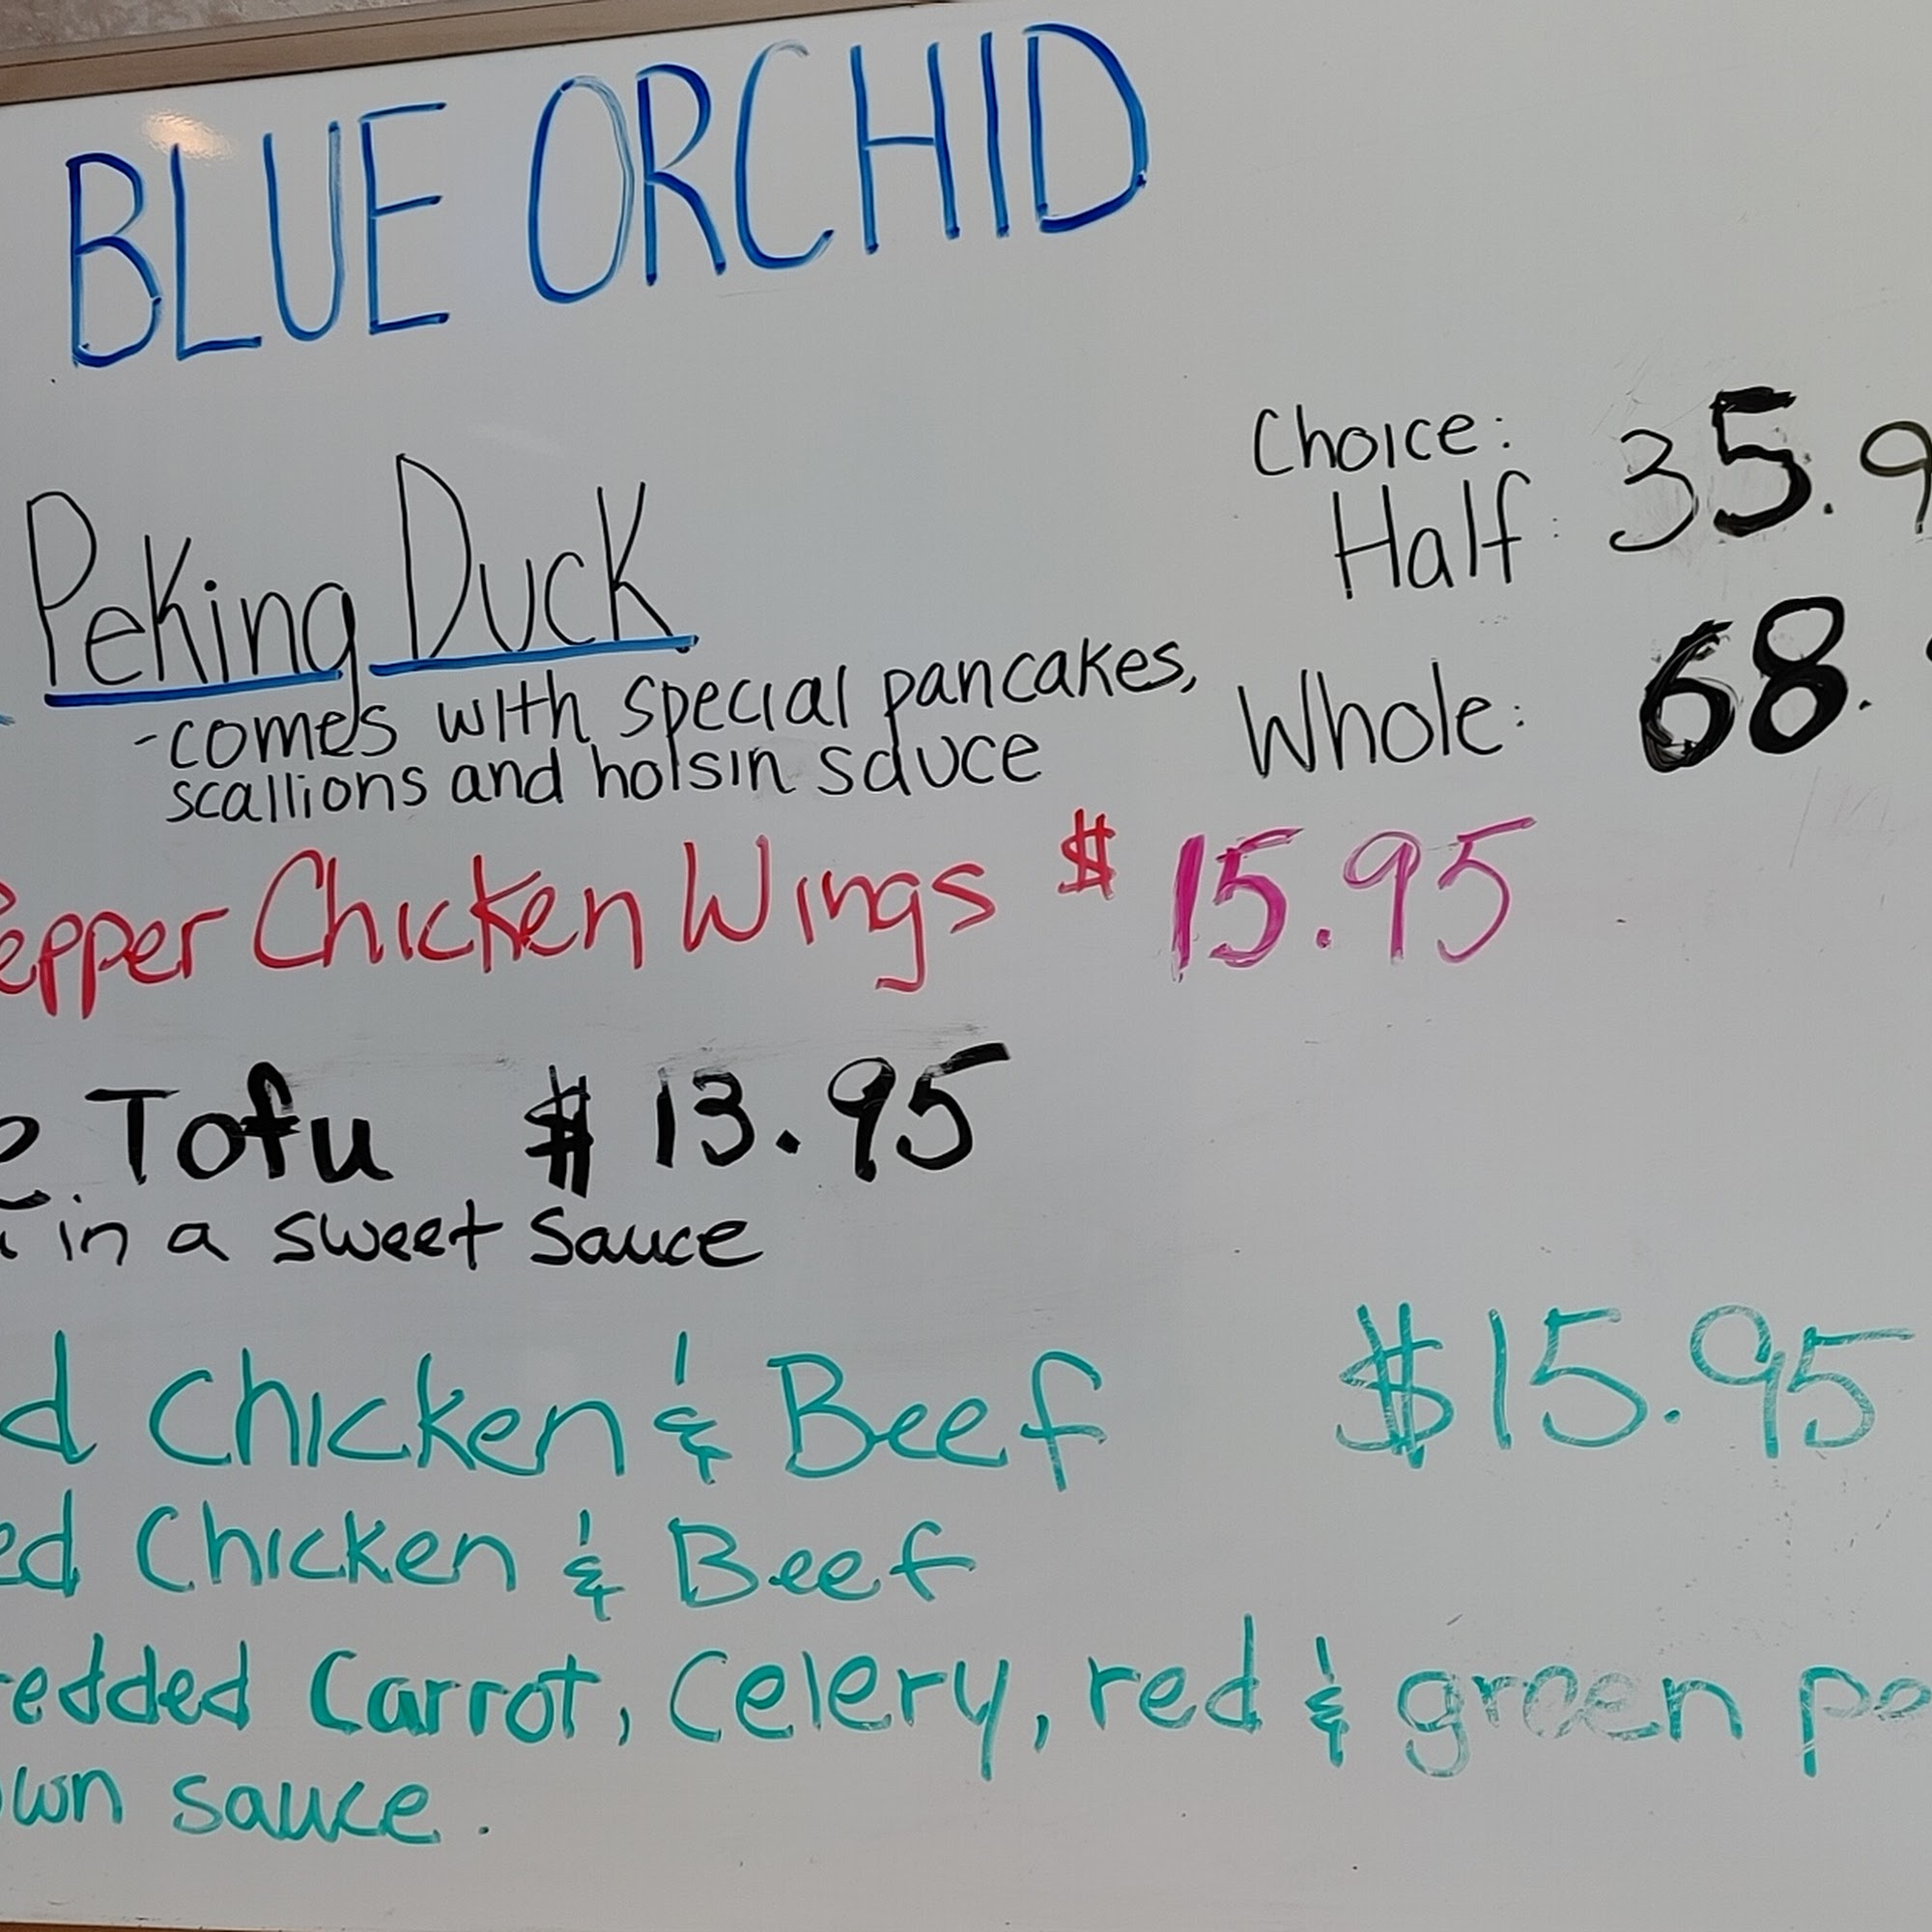 BLUE ORCHID
Choice:
Peking Duck Half: 35.9
-comes with special pancakes, Whole: 68.
scallions and hoisin sauce
epper Chicken Wings $ 15.95
Tofu $ 13.95
in a sweet sauce
d Chicken & Beef $15.95
ed Chicken & Beef
redded Carrot, Celery, red & green pe
own sauce.